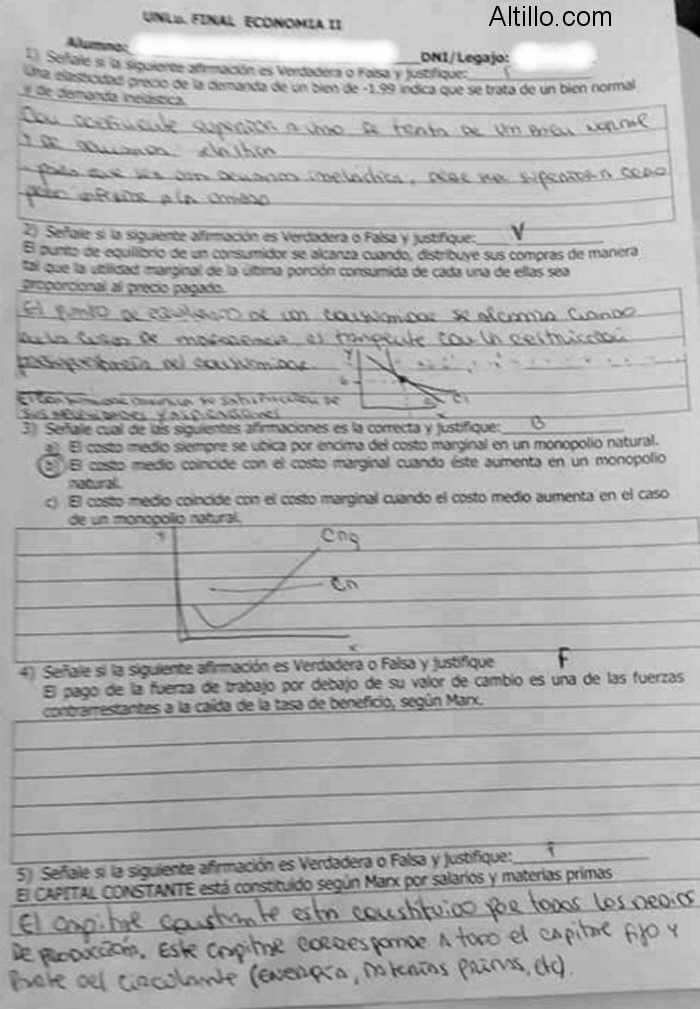 Altillo.com
UNLu. FINAL ECONOMIA II
Alumno: DNI/Legajo:
1) Señale si la siguiente afirmación es Verdadera o Falsa y justifique: F
Una elasticidad precio de la demanda de un bien de -1.99 indica que se trata de un bien normal
y de demanda inelástica.
Con coeficiente superior a uno se trata de un bien normal
y de demanda elástica
para que sea con demanda inelástica, debe ser superior a cero
pero inferior a la unidad
2) Señale si la siguiente afirmación es Verdadera o Falsa y justifique: V
El punto de equilibrio de un consumidor se alcanza cuando, distribuye sus compras de manera
tal que la utilidad marginal de la última porción consumida de cada una de ellas sea
proporcional al precio pagado.
El punto de equilibrio de un consumidor se alcanza cuando
la curva de indiferencia es tangente con la restricción
presupuestaria del consumidor
y
El consumidor la satisfacción de
sus necesidades y aspiraciones
3) Señale cual de las siguientes afirmaciones es la correcta y justifique: B
a) El costo medio siempre se ubica por encima del costo marginal en un monopolio natural.
b) El costo medio coincide con el costo marginal cuando éste aumenta en un monopolio
natural.
c) El costo medio coincide con el costo marginal cuando el costo medio aumenta en el caso
de un monopolio natural.
y
Cmg
Cm
x
4) Señale si la siguiente afirmación es Verdadera o Falsa y justifique F
El pago de la fuerza de trabajo por debajo de su valor de cambio es una de las fuerzas
contrarrestantes a la caída de la tasa de beneficio, según Marx.
5) Señale si la siguiente afirmación es Verdadera o Falsa y justifique: F
El CAPITAL CONSTANTE está constituido según Marx por salarios y materias primas
El capital constante esta constituido por todos los medios
de producción. Este capital corresponde a todo el capital fijo y
parte del circulante (energía, materias primas, etc).